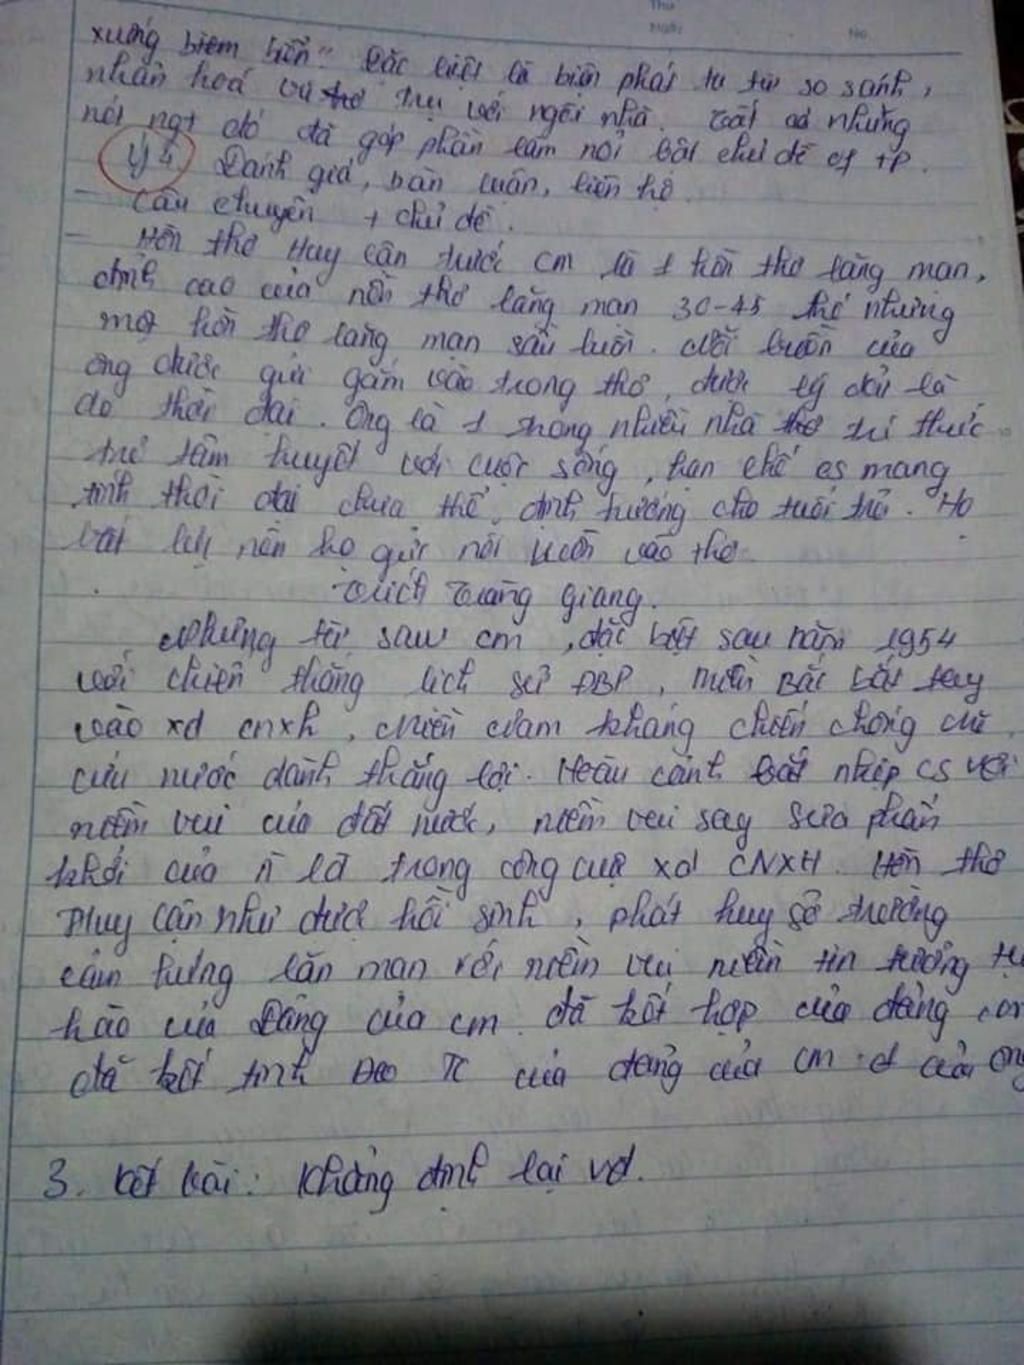 Thứ
Ngày No.
xuống biển. Đặc biệt là biện pháp tu từ so sánh,
nhân hoá vũ trụ với ngôi nhà. Tất cả những
nét ngt đó đã góp phần làm nổi bật chủ đề of tp.
Ý 4. Đánh giá, bàn luận, liên hệ.
- Câu chuyện + chủ đề.
- Hồn thơ Huy Cận trước cm là 1 hồn thơ lãng mạn,
đỉnh cao của nền thơ lãng mạn 30-45 thế nhưng
một hồn thơ lãng mạn sầu buồn. Nỗi buồn của
ông được gửi gắm vào trong thơ, được lý giải là
do thời đại. Ông là 1 trong nhiều nhà thơ trí thức
trẻ tâm huyết với cuộc sống, hạn chế cs mang
tính thời đại chưa thể định hướng cho tuổi trẻ. Họ
bất lực nên họ gửi nỗi buồn vào thơ
Trích Tràng Giang.
Nhưng từ sau cm, đặc biệt sau năm 1954
với chiến thắng lịch sử ĐBP, miền Bắc bắt tay
vào xd cnxh, Miền Nam kháng chiến chống Mĩ
cứu nước dành thắng lợi. Hoàn cảnh nhịp cs với
niềm vui của đất nước, niềm vui say sưa phấn
khởi của lđ trong công cuộc xd CNXH. Hồn thơ
Huy Cận như được hồi sinh, phát huy sở trường
cảm hứng lãn mạn với niềm vui niềm tin tưởng tự
hào của Đảng của cm. đã kết hợp của đảng
đã kết tinh của đảng của cm của ông
3. Kết bài: Khẳng định lại vđ.